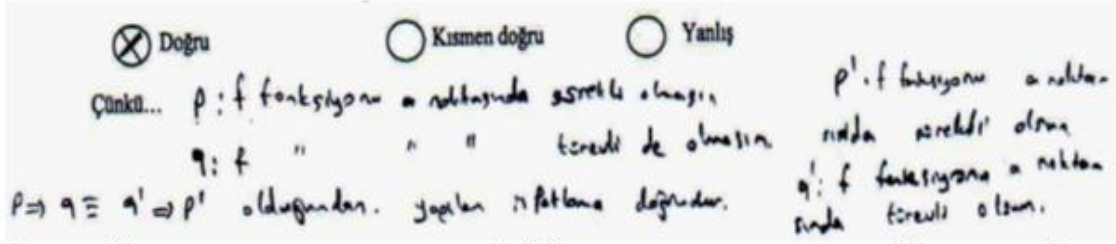 Doğru Kısmen doğru Yanlış
Çünkü... p : f fonksiyonu a noktasında sürekli olmasın
q : f " " " türevli de olmasın.
p ⇒ q ≡ q' ⇒ p' olduğundan. yapılan ispatlama doğrudur.
p' : f fonksiyonu a noktasında sürekli olsun
q' : f fonksiyonu a noktasında türevli olsun.